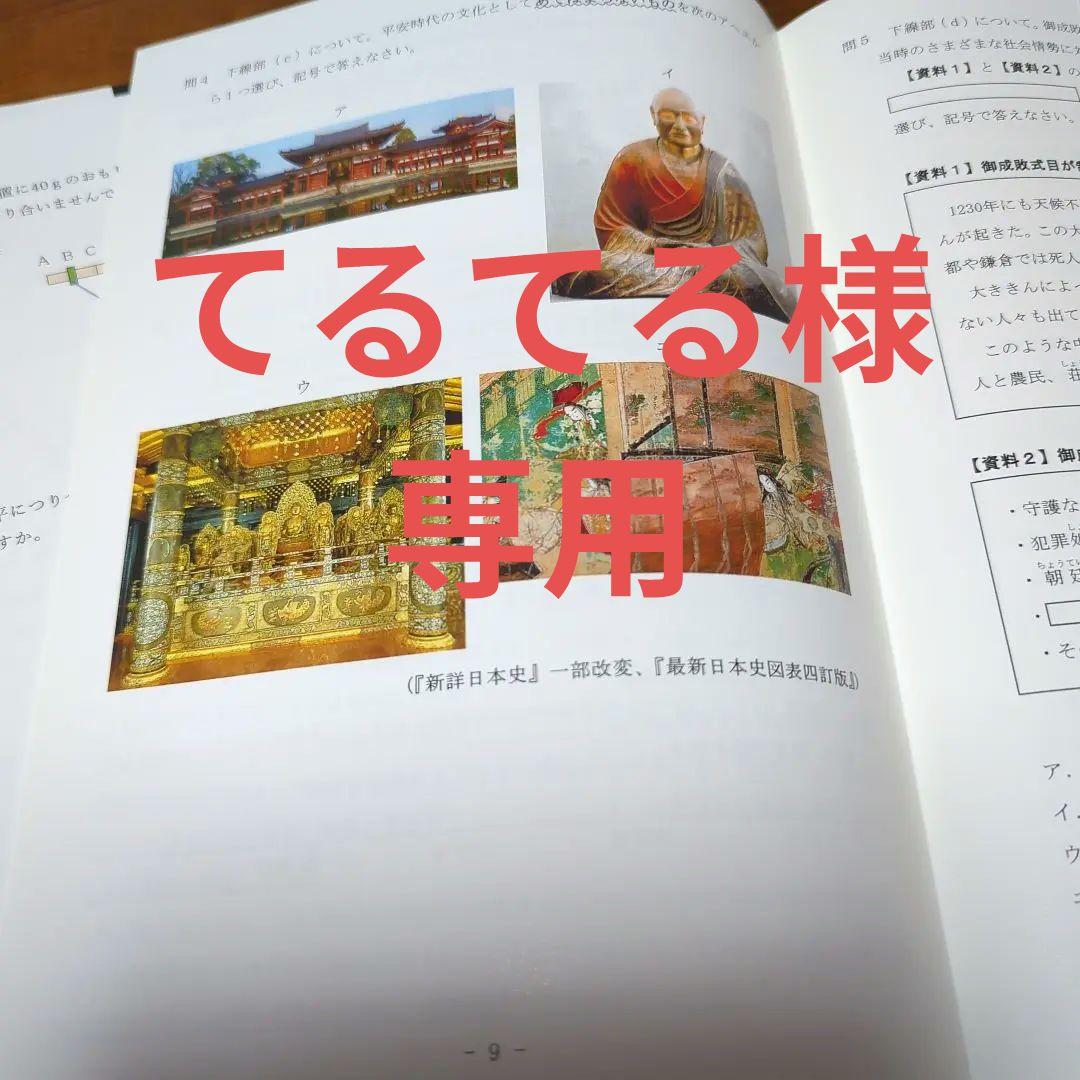 置に40gのおも
り合いませんで
A B C
平につり
すか。
問4 下線部(e)について。平安時代の文化としてあてはまらないものを次のア〜エか
ら1つ選び、記号で答えなさい。
ア
イ
ウ
エ
てるてる様
専用
(『新詳日本史』一部改変、『最新日本史図表四訂版』)
- 9 -
問5 下線部(d)について。御成敗
当時のさまざまな社会情勢に
【資料1】と【資料2】の
選び、記号で答えなさい。
【資料1】御成敗式目が
1230年にも天候不
んが起きた。この大
都や鎌倉では死人
大ききんによっ
ない人々も出て
このような
人と農民、荘
しょ
【資料2】御成
・守護な
・犯罪
ちょうてい
・朝廷
・
・そ
ア.
イ.
ウ
エ